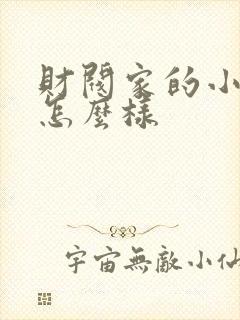 財閥家的小
怎麼樣
宇宙無敵小仙